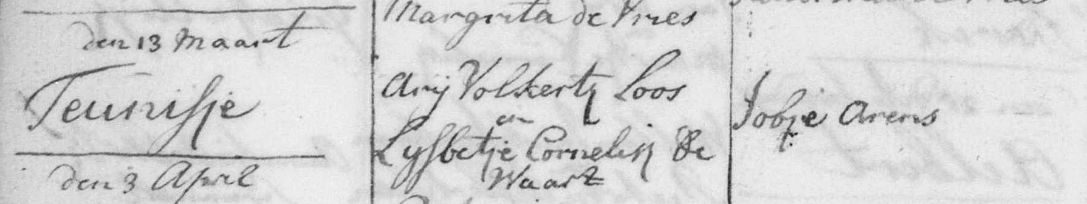 Margrita de Vries
den 13 Maart
Teunisje
Arij Volkertz Loos
en
Lysbetje Cornelisz de
Waart
Jobje Arens
den 3 April